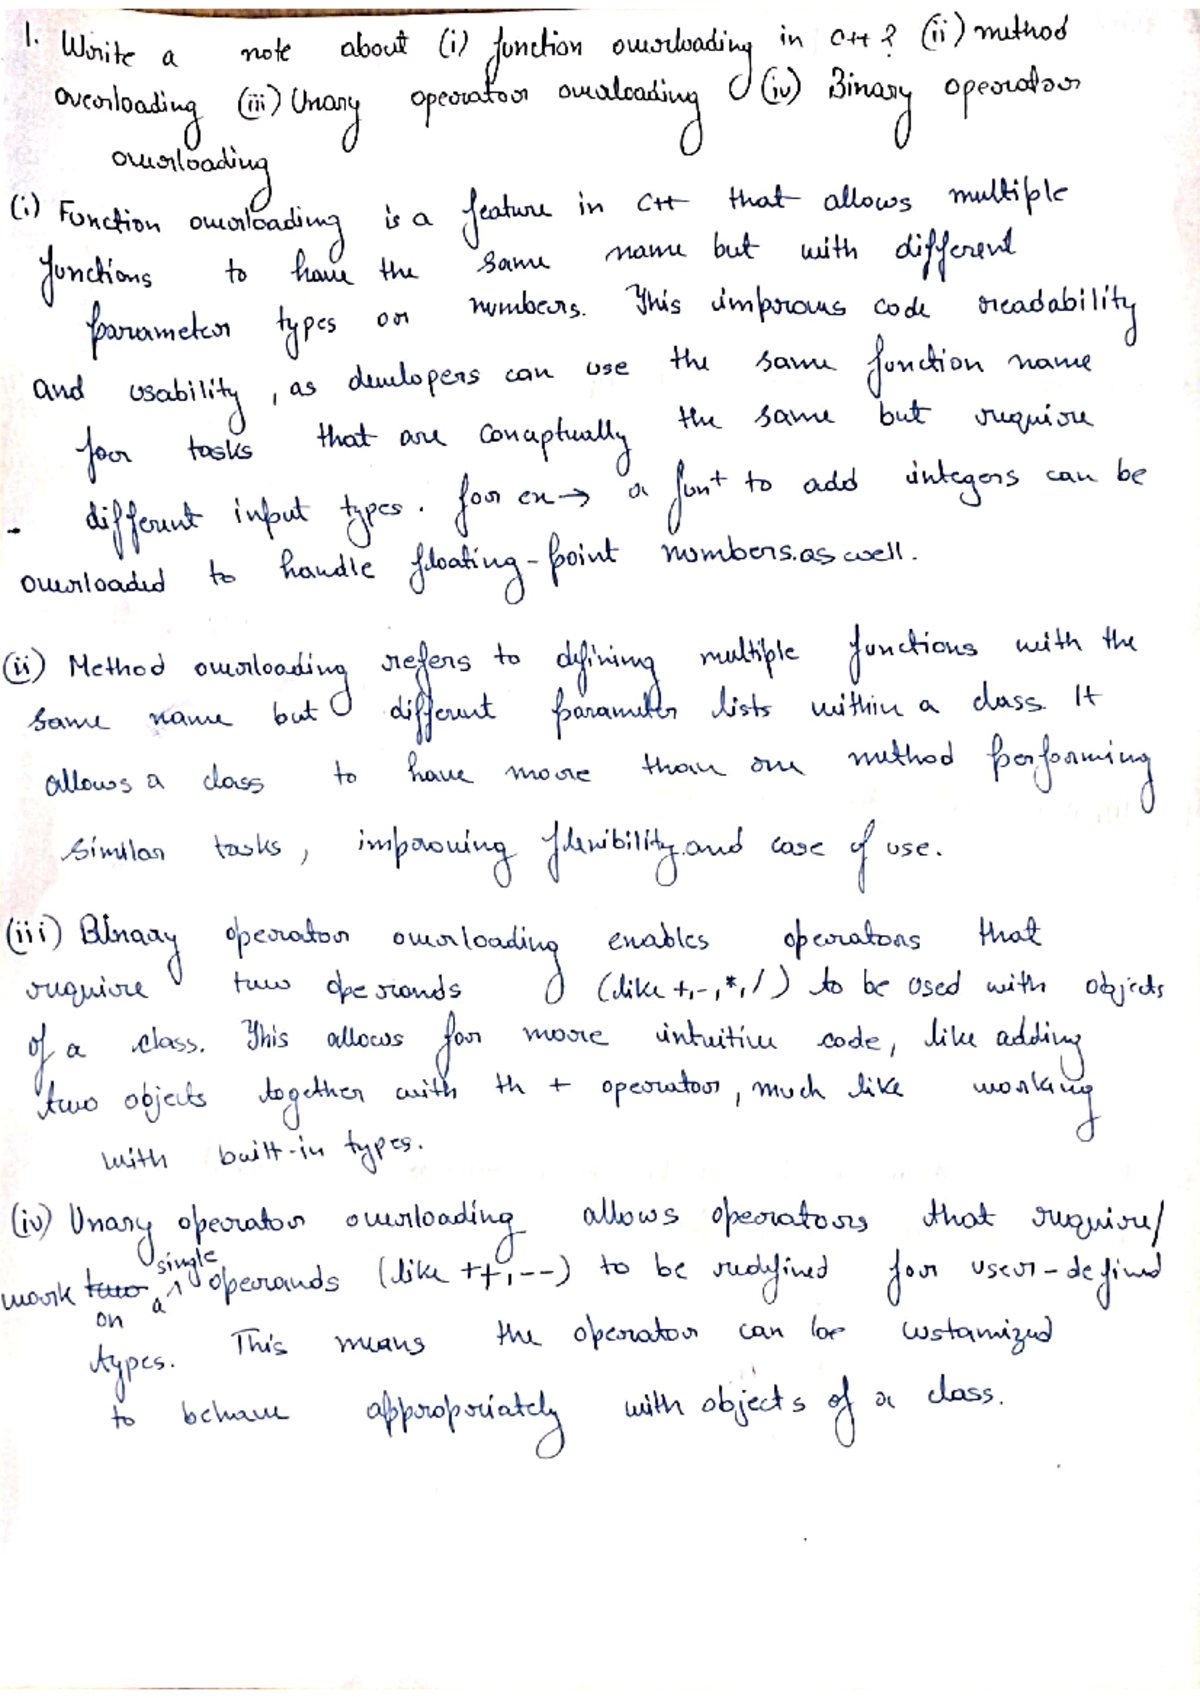 1. Write a note about (i) function overloading in C++ ? (ii) method
overloading (iii) Unary operator overloading (iv) Binary operator
overloading
(i) Function overloading is a feature in C++ that allows multiple
functions to have the same name but with different
parameter types or numbers. This improves code readability
and usability, as developers can use the same function name
for tasks that are conceptually the same but require
different input types. for ex→ a funt to add integers can be
overloaded to handle floating-point numbers.as well.
(ii) Method overloading refers to defining multiple functions with the
same name but different parameter lists within a class. It
allows a class to have more than one method performing
similar tasks, improving flexibility.and ease of use.
(iii) Binary operator overloading enables operators that
require two operands (like +,-,*,/) to be used with objects
of a class. This allows for more intuitive code, like adding
two objects together with th + operator, much like working
with built-in types.
(iv) Unary operator overloading allows operators that require/
work on a single operands (like ++,--) to be redefined for user-defined
types. This means the operator can be customized
to behave appropriately with objects of a class.